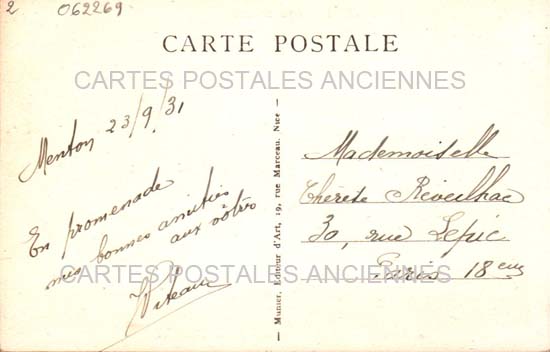 2 062269
CARTE POSTALE
CARTES POSTALES ANCIENNES
Menton 23/9/31
En promenade
mes bonnes amitiés
aux vôtres
Munier, Editeur d'Art, 19, rue Marceau, Nice
Mademoiselle
Therese Reveilhac
30, rue Lepic
Paris 18eme
CARTES POSTALES ANCIENNES